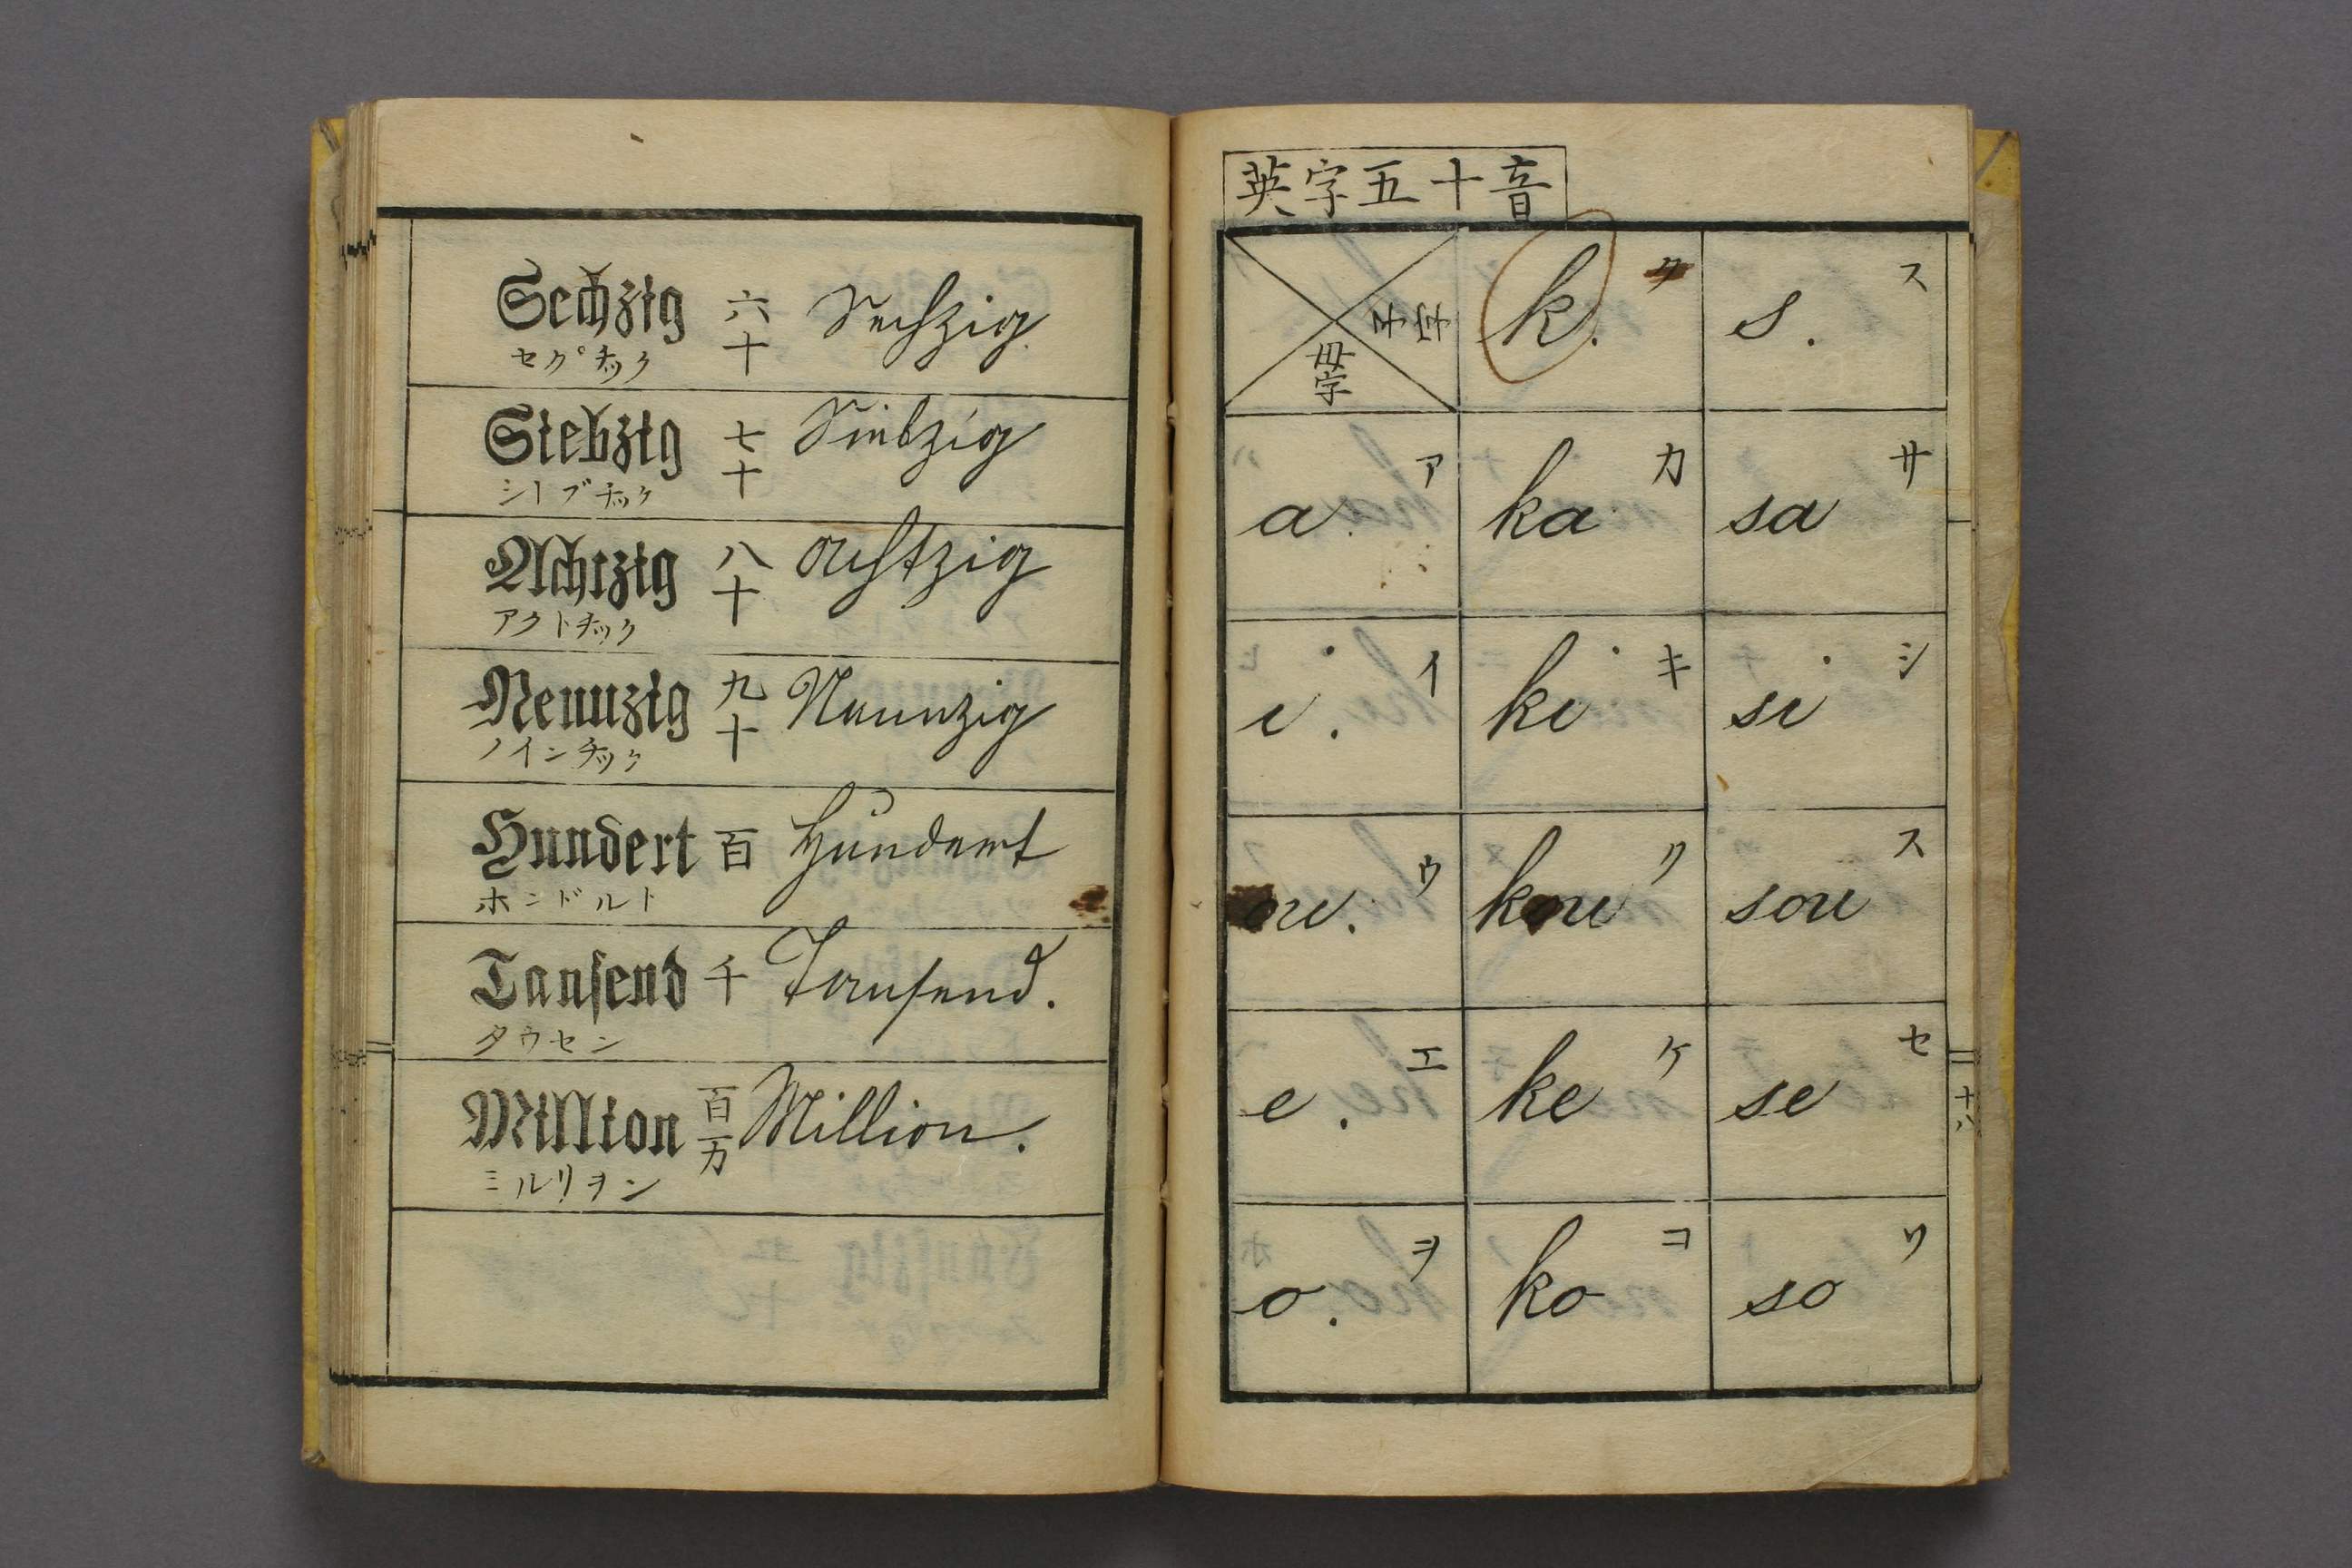 Sechzig 六十 Sechzig
セクﾟチック
Siebzig 七十 Siebzig
シーブチック
Achtzig 八十 Achtzig
アクトチック
Neunzig 九十 Neunzig
ノインチック
Hundert 百 Hundert
ホンドルト
Tausend 千 Tausend.
タウセン
Million 百万 Million.
ミルリヲン
英字五十音
子字 母字 k. ク s. ス
a. ア ka カ sa サ
i. イ ki キ si シ
ou. ウ kou ク sou ス
e. エ ke ケ se セ
o. ヲ ko コ so ソ
十八